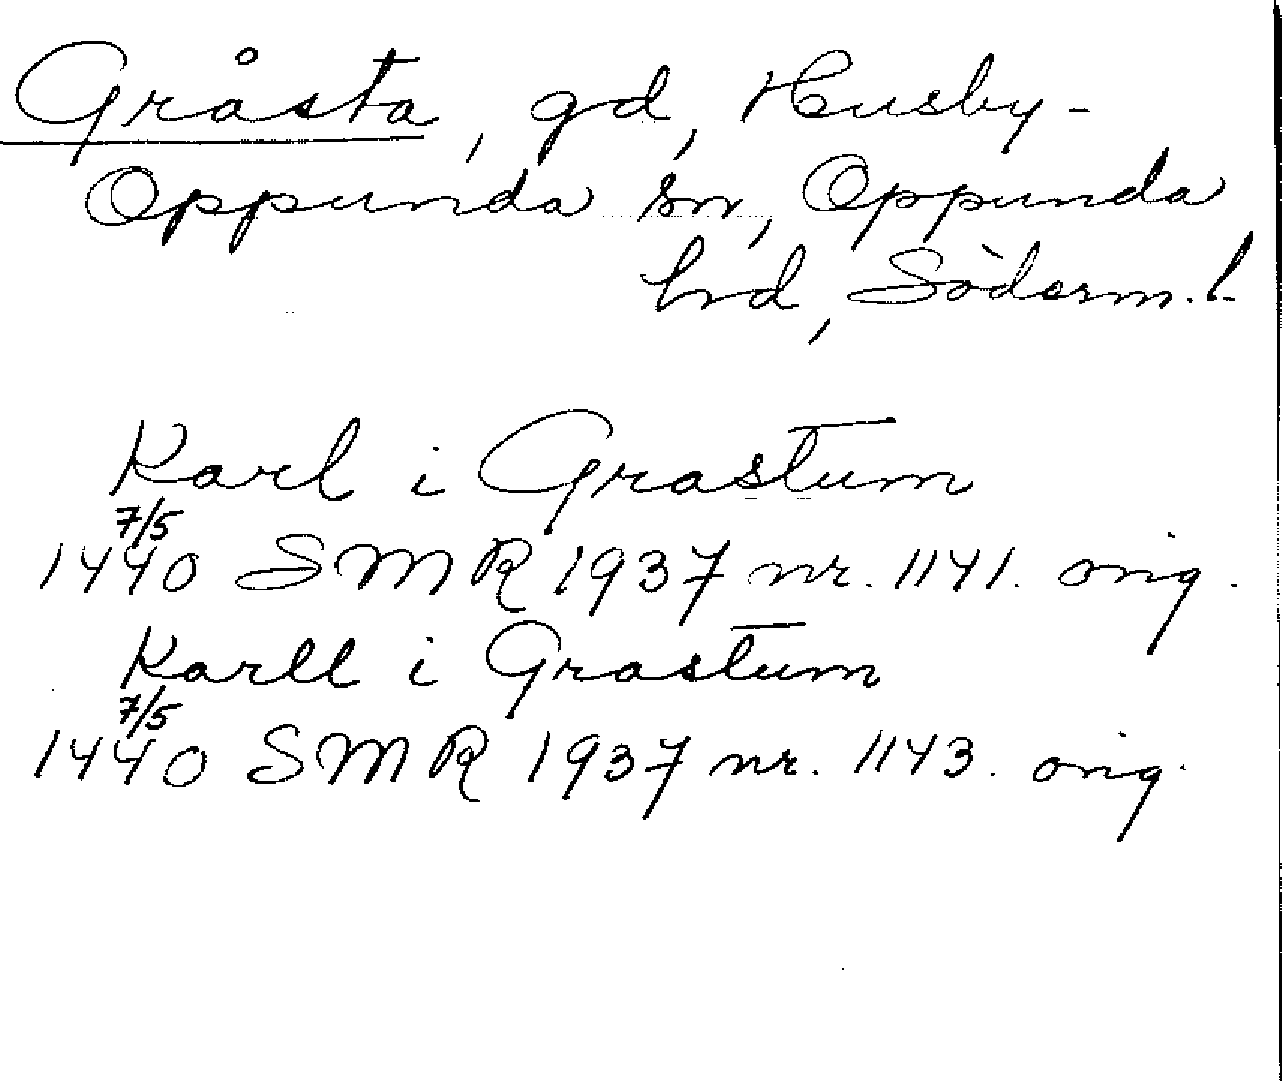 Gråsta, gd, Husby-
Oppunda sn, Oppunda
hd, Söderm. l.
Karl i Grastum
7/5
1440 SMR 1937 nr. 1141. orig.
Karll i Grastum
7/5
1440 SMR 1937 nr. 1143. orig.